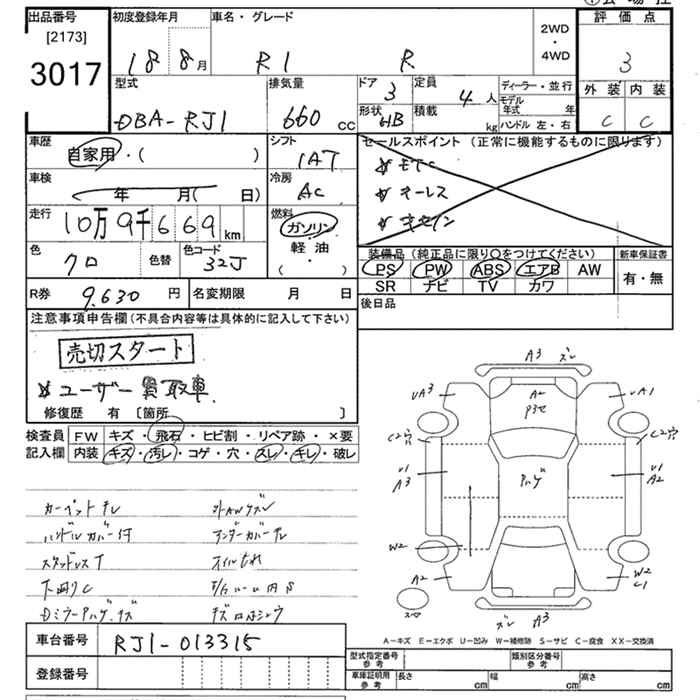 出品番号
[2173]
3017
初度登録年月
18 8月
車名・グレード
R1 R
2WD
・
4WD
評価点
3
外装 内装
C C
型式
DBA-RJ1
排気量
660 CC
ドア 3
形状 HB
定員 4 人
積載 kg
ディーラー・並行
モデル年式 年
ハンドル 左・右
車歴
自家用・( )
シフト
1AT
セールスポイント (正常に機能するものに限ります)
ETC
キーレス
車検
年 月( 日)
冷房
AC
走行
10万9千669km
燃料
ガソリン
軽油
( ・ )
色
クロ
色替
色コード
32J
装備品 (純正品に限り○をつけてください)
PS PW ABS エアB AW
SR ナビ TV カワ
新車保証書
有・無
R券 9,630 円 名変期限 月 日
後日品
注意事項申告欄(不具合内容等は具体的に記入して下さい)
売切スタート
ユーザー買取車
修復歴 有 [箇所 ]
検査員記入欄
FW キズ・飛石・ヒビ割・リペア跡・×要
内装 キズ・汚レ・コゲ・穴・スレ・キレ・破レ
ハンドルカバー付
アンダーカバーナシ
スタッドレスT
下回りC
A3 ズレ
UA3 A2 UA1
C2穴 C2穴
U1 A3 U1 A2
W2 W2
A2 C1
ズレ A3
A-キズ E-エクボ U-凹み W-補修跡 S-サビ C-腐食 XX-交換済
車台番号 RJ1-013315
登録番号
型式指定番号 参考
類別区分番号 参考
車庫証明用 参考 長さ cm 幅 cm 高さ cm